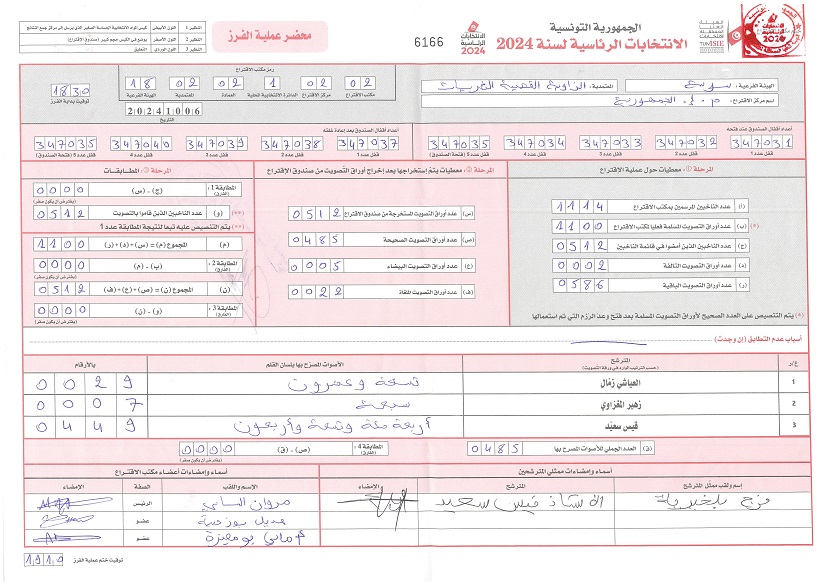 الجمهورية التونسية
الانتخابات الرئاسية لسنة 2024
الانتخابات الرئاسية 2024
6166
محضر عملية الفرز
التنظير 1 اللون الأبيض
التنظير 2 اللون الأصفر
التنظير 3 اللون الوردي التعليق
الهيئة الفرعية : سوسة
المعتمدية : الزاوية القصيبة الثريات
اسم مركز الاقتراع : م. إ. الجمهورية
رمز مكتب الاقتراع
02 02 1 02 02 18
مكتب الاقتراع مركز الاقتراع الدائرة الانتخابية المحلية العمادة المعتمدية الهيئة الفرعية
20241006
التاريخ
1830
توقيت بداية الفرز
أعداد أقفال الصندوق عند فتحه
347031 347032 347033 347034 347035
قفل عدد 1 قفل عدد 2 قفل عدد 3 قفل عدد 4 قفل عدد 5 (فتحة الصندوق)
أعداد أقفال الصندوق بعد إعادة غلقه
347037 347038 347039 347040 347035
قفل عدد 1 قفل عدد 2 قفل عدد 3 قفل عدد 4 قفل عدد 5 (فتحة الصندوق)
المرحلة 1: معطيات حول عملية الاقتراع
(أ) عدد الناخبين المرسمين بمكتب الاقتراع 1114
(ب) عدد أوراق التصويت المسلمة فعليا لمكتب الاقتراع 1100
(ج) عدد الناخبين الذين أمضوا في قائمة الناخبين 0512
(د) عدد أوراق التصويت التالفة 0002
(ر) عدد أوراق التصويت الباقية 0586
(*) يتم التنصيص على العدد الصحيح لأوراق التصويت المسلمة بعد فتح وعد الرزم التي تم استعمالها
المرحلة 2: معطيات يتم إستخراجها بعد إخراج أوراق التصويت من صندوق الاقتراع
(س) عدد أوراق التصويت المستخرجة من صندوق الاقتراع 0512
(ص) عدد أوراق التصويت الصحيحة 0485
(ع) عدد أوراق التصويت البيضاء 0005
(ف) عدد أوراق التصويت الملغاة 0022
المرحلة 3: المطابقات
المطابقة 1: (ج) - (س) 0000
(و) عدد الناخبين الذين قاموا بالتصويت 0512
(**) يتم التنصيص عليه تبعا لنتيجة المطابقة عدد 1
(م) المجموع (م) = (س) + (د) + (ر) 1100
المطابقة 2: (ب) - (م) 0000
(ن) المجموع (ن) = (ص) + (ع) + (ف) 0512
المطابقة 3: (و) - (ن) 0000
أسباب عدم التطابق (إن وجدت)
ع/د المترشح الأصوات المصرح بها بلسان القلم بالأرقام
(حسب الترتيب الوارد في ورقة التصويت)
1 العياشي زمال تسعة وعشرون 0029
2 زهير المغزاوي سبعة 0007
3 قيس سعيد أربعة مئة وتسعة وأربعون 0449
(ق) العدد الجملي للأصوات المصرح بها 0485
المطابقة 4: (ص) - (ق) 0000
أسماء وإمضاءات ممثلي المترشحين
أسماء وإمضاءات أعضاء مكتب الاقتراع
إسم ولقب ممثل المترشح المترشح الإمضاء
الإسم واللقب الصفة الإمضاء
الأستاذ قيس سعيد
مروان الرئيس
عضو
عضو
توقيت ختم عملية الفرز 1910